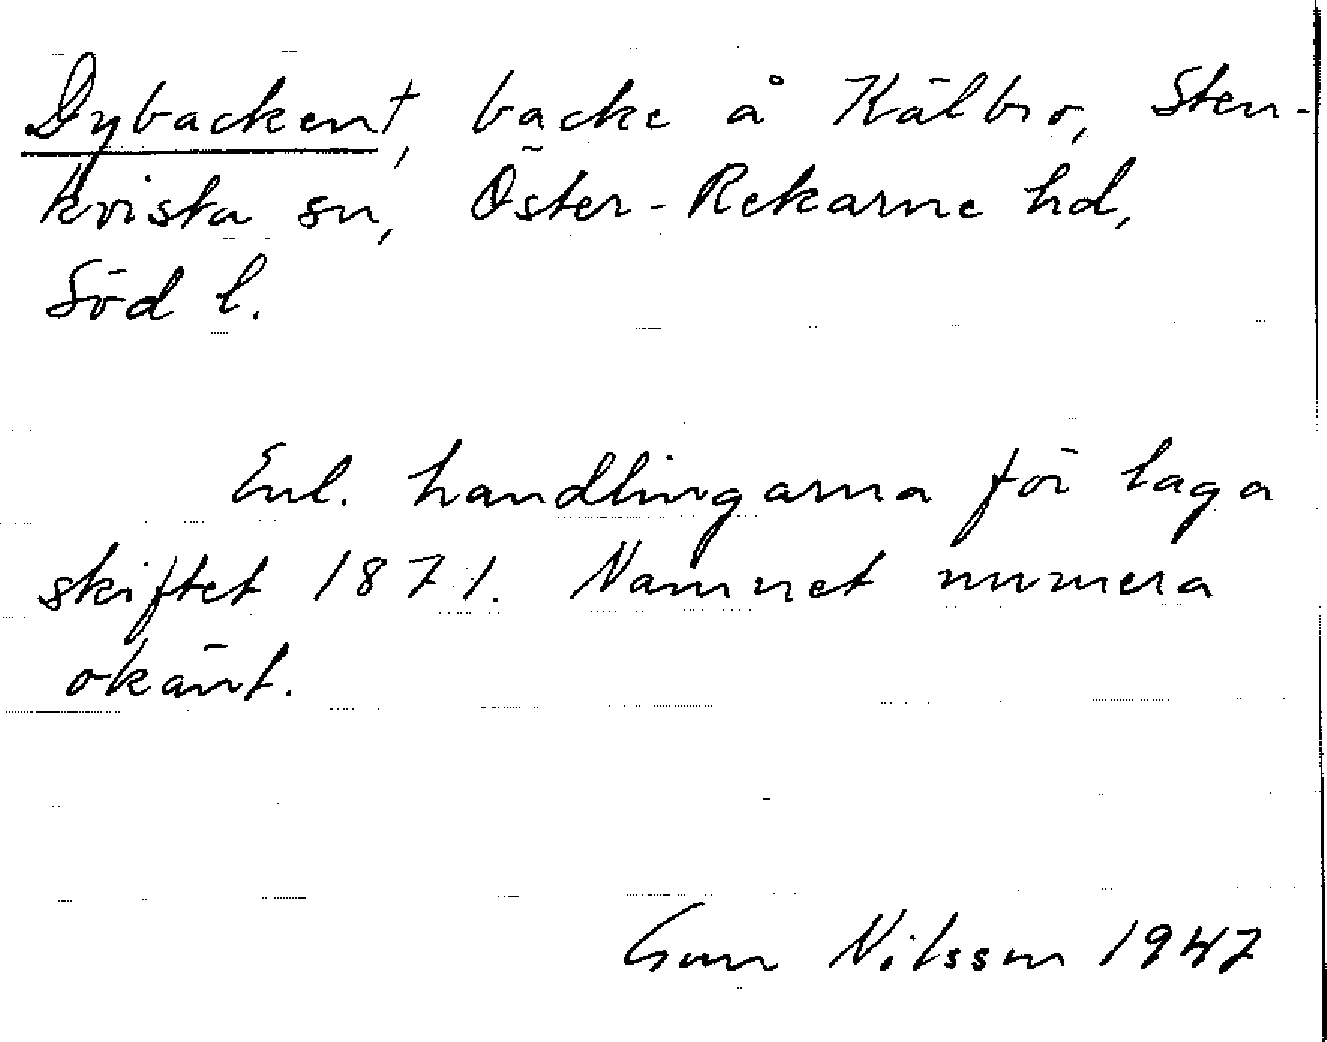 Dybacken†, backe å Kälbro, Sten-
kvista sn, Öster-Rekarne hd,
Söd l.
Enl. handlingarna för laga
skiftet 1871. Namnet numera
okänt.
Gun Nilsson 1947